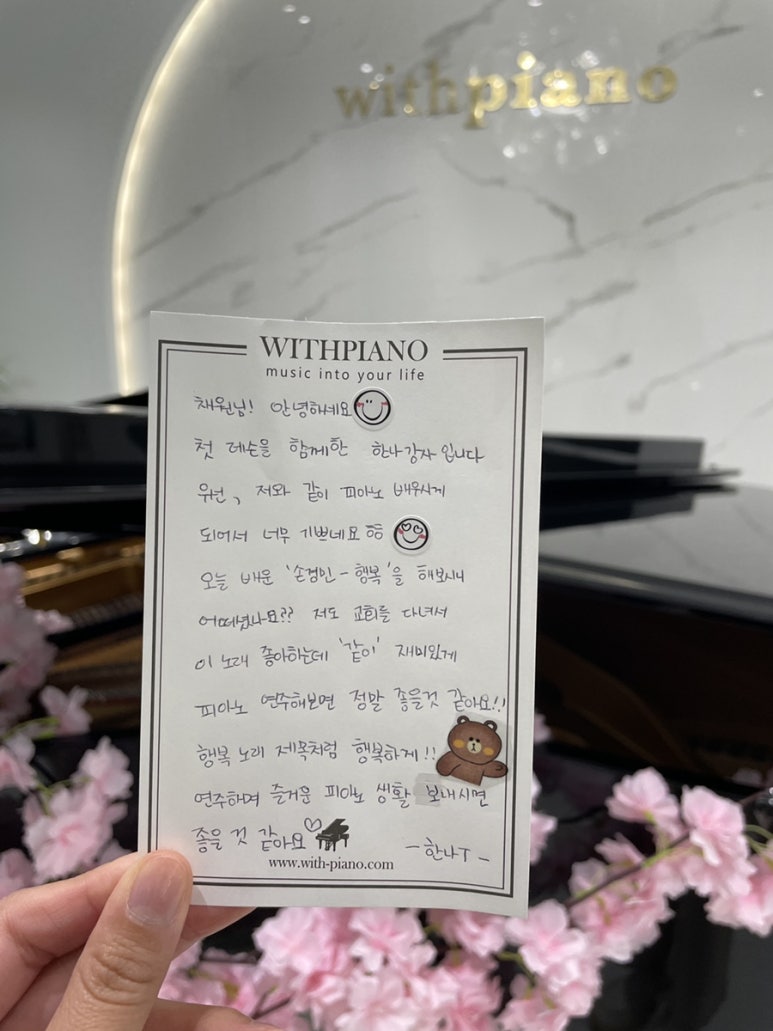 withpiano
WITHPIANO
music into your life
채원님! 안녕하세요
첫 레슨을 함께한 한나강사입니다
우선, 저와 같이 피아노 배우시게
되어서 너무 기쁘네요
오늘 배운 '손경민-행복'을 해보시니
어떠셨나요?? 저도 교회를 다녀서
이 노래 좋아하는데 '같이' 재미있게
피아노 연주해보면 정말 좋을것 같아요!!
행복 노래 제목처럼 행복하게!!
연주하며 즐거운 피아노 생활 보내시면
좋을 것 같아요♡
-한나T-
www.with-piano.com